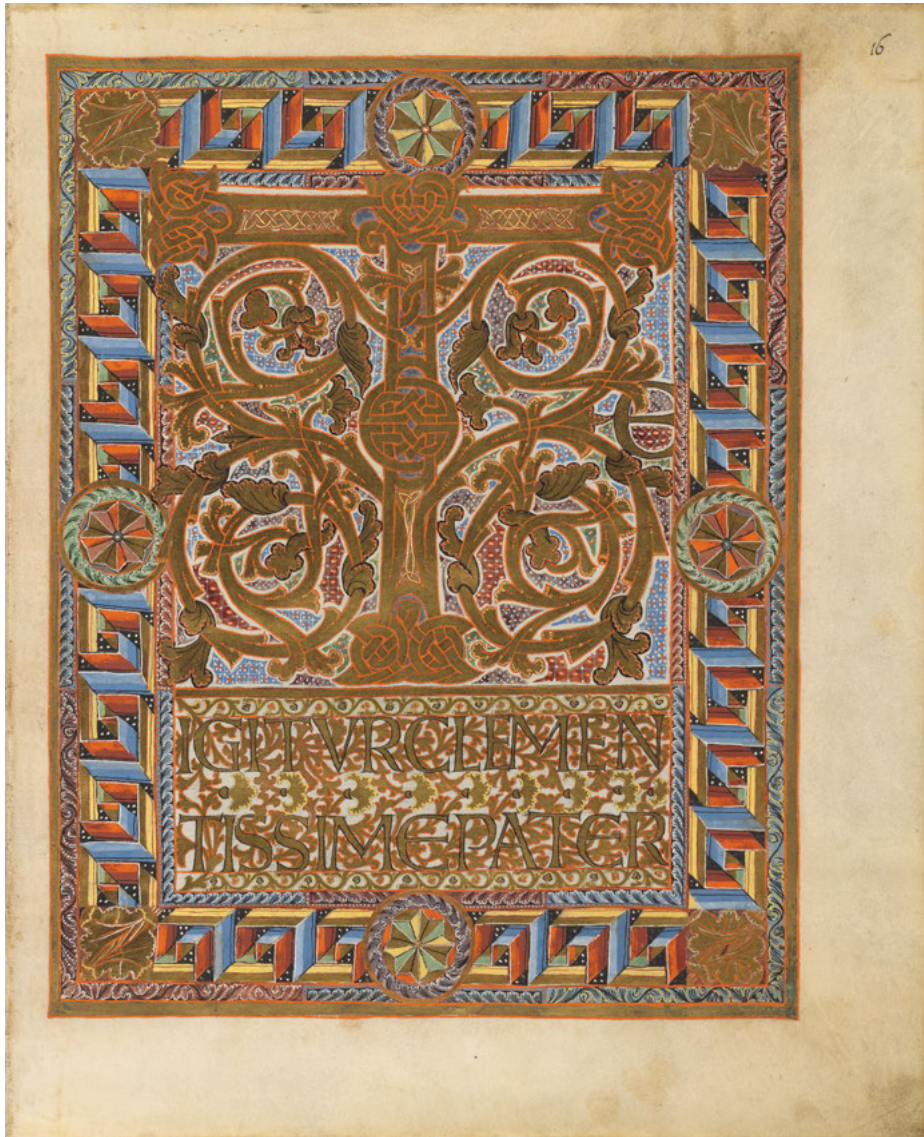 16
TE
IGITVRCLEMEN
TISSIMEPATER